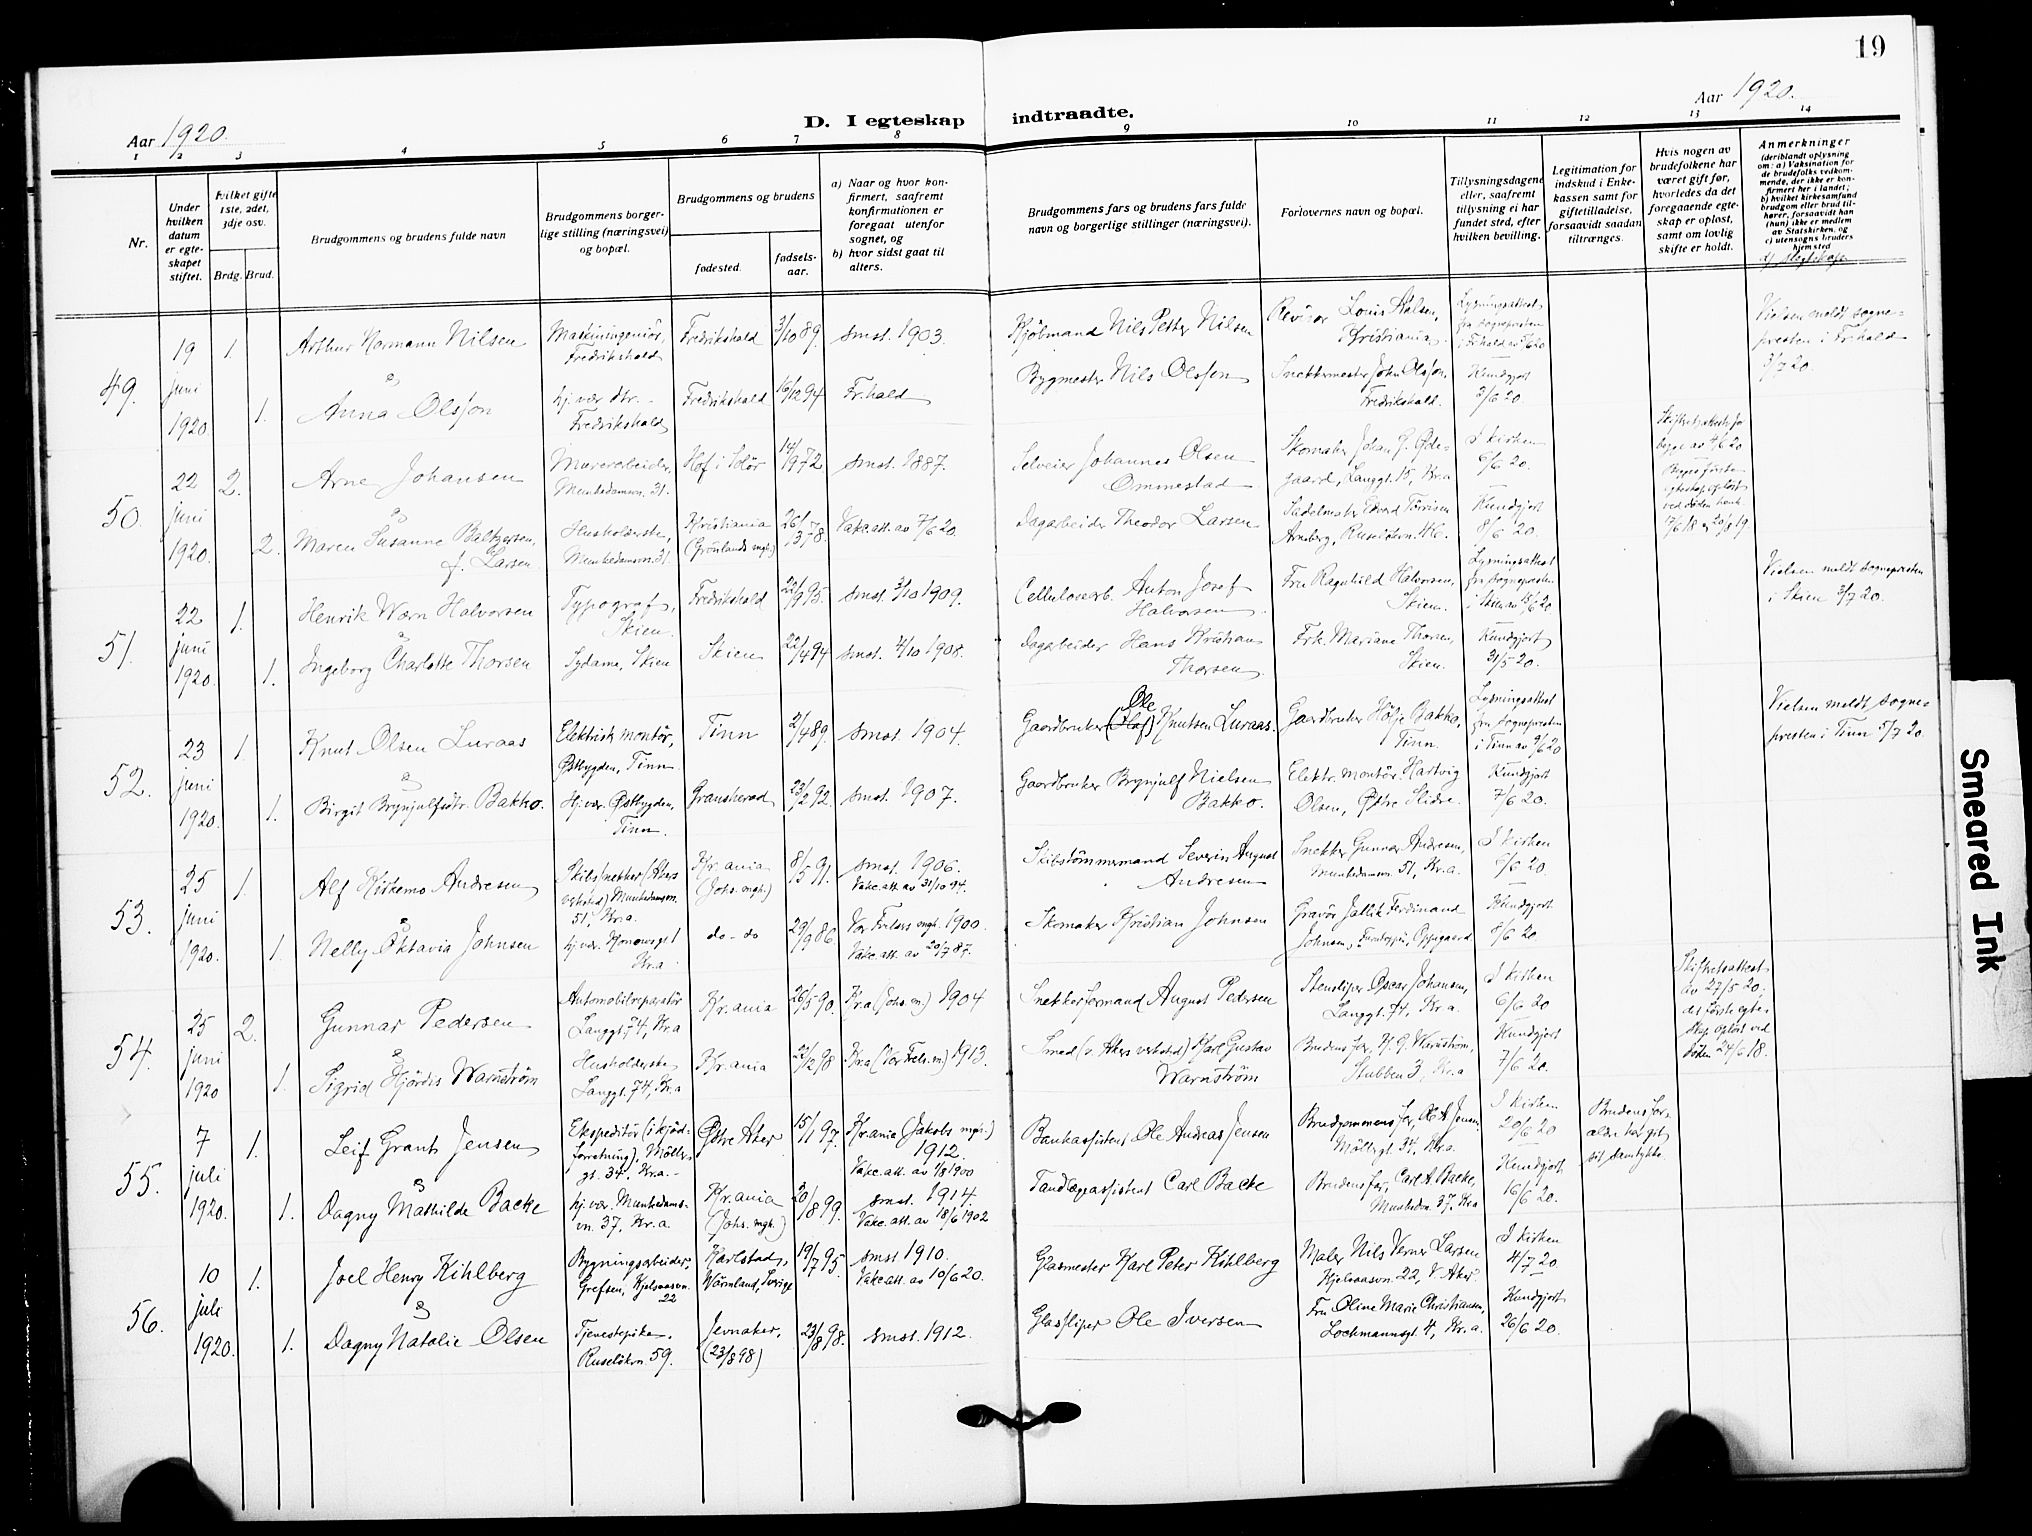 19
Aar 1920.
D. I egteskap indtraadte.
Aar 1920.
1 2 3 4 5 6 7 8 9 10 11 12 13 14
Nr.
Under hvilken datum er egteskapet stiftet.
Hvilket gifte 1ste, 2det, 3dje osv.
Brdg. Brud.
Brudgommens og brudens fulde navn
Brudgommens borgerlige stilling (næringsvei) og bopæl.
Brudgommens og brudens
fødested.
fødselsaar.
a) Naar og hvor konfirmert, saafremt konfirmationen er foregaat utenfor sognet, og
b) hvor sidst gaat til alters.
Brudgommens fars og brudens fars fulde navn og borgerlige stillinger (næringsvei).
Forlovernes navn og bopæl.
Tillysningsdagene eller, saafremt tillysning ei har fundet sted, efter hvilken bevilling.
Legitimation for indskud i Enkekassen samt for giftetilladelse, forsaavidt saadan tiltrænges.
Hvis nogen av brudefolkene har været gift før, hvorledes da det foregaaende egteskap er opløst, samt om lovlig skifte er holdt.
Anmerkninger
(deriblandt oplysning om: a) Vaksination for de brudefolks vedkommende, der ikke er konfirmert her i landet; b) hvilket kirkesamfund brudgom eller brud tilhører, forsaavidt han (hun) ikke er medlem av Statskirken, og c) utensogns bruders hjemsted
49.
19 juni 1920
1.
Arthur Hermann Nilsen
Maskiningeniör, Fredrikshald
Fredrikshald
3/10 89.
smst. 1903.
Kjöbmand Nils Petter Nilsen
Revisor Louis Halsen, Kristiania.
Lysningsattest fra sognepresten i Fr.hald av 5/6 20
Vielsen meldt sognepresten i Fr.hald 3/7 20.
&
1.
Anna Olsson
hj. vær. dtr. - Fredrikshald
Fredrikshald
16/12 94
Fr.hald
Bygmester Nils Olsson
Snekkermester John Olsson, Fredrikshald.
Kundgjort 3/6 20.
50.
22 juni 1920.
2.
Arne Johansen
Murerarbeider, Munkedamsvn. 31.
Hof i Solör
14/9 72
smst. 1887.
Selveier Johannes Olsen Ommestad
Skomaker Johan J. Ødegaard, Langgt. 15, Kr.a
I kirken 6/6 20.
&
2.
Maren Susanne Baltzersen, f. Larsen
Husholderske, Munkedamsvn. 31.
Kristiania (Grönlands mgh.)
26/3 78.
Vakc. att. av 7/6 20.
Dagarbeider Theodor Larsen
Kundgjort 8/6 20.
51.
22 juni 1920.
1.
Henrik Wærn Halvorsen
Typograf, Skien.
Fredrikshald
22/9 95.
smst. 3/10 1909.
Cellulosearb. Anton Josef Halvorsen.
Fru Ragnhild Halvorsen, Skien.
Lysningsattest fra sognepresten i Skien av 18/6 20
Vielsen meldt sognepresten i Skien 3/7 20.
&
1.
Ingeborg Charlotte Thorsen
Sydame, Skien
Skien
22/4 94
smst. 4/10 1908.
Dagarbeider Hans Kristian Thorsen
Frk. Mariane Thorsen, Skien.
Kundgjort 31/5 20.
52.
23 juni 1920.
1.
Knut Olsen Luraas
Elektrisk montör, Østbygden, Tinn
Tinn
2/4 89.
smst. 1904.
Gaardbruker (Olaf) Ole Knutsen Luraas.
Gaardbruker Höljе Bakko, Tinn.
Lysningsattest fra sognepresten i Tinn av 9/6 20
Vielsen meldt sognepresten i Tinn 5/7 20.
&
1.
Birgit Brynjulfsdtr. Bakko.
Hj. vær. Østbygden, Tinn.
Gransherad
23/2 92.
smst. 1907.
Gaardbruker Brynjulf Nielsen Bakko.
Elektr. montör. Hartvig Olsen, Østre Slidre.
Kundgjort 7/6 20.
53.
25 juni 1920.
1.
Alf Kirkemo Andresen
Skibssnekker (Akers verksted) Munkedamsvn. 51, Kr.a.
Kr.ania (Johs. mgh.)
8/5 91.
smst. 1906. Vakc. att. av 31/10 94.
Skibstömmermand Severin August Andresen
Snekker Gunnar Andresen, Munkedamsvn. 51, Kr.a.
I kirken 6/6 20.
&
1.
Nelly Oktavia Johnsen
hj. vær. Konowsgt 1 Kr.a.
do - do
29/9 86
Vor Frelsers mgh. 1900. Vakc. att. av 20/7 87.
Skomaker Kristian Johnsen
Gravör Jallik Ferdinand Johnsen, Oppegaard
Kundgjort 8/6 20
54.
25 juni 1920
2.
Gunnar Pedersen
Automobilreparatör Langgt. 74, Kr.a
Kr.ania
26/5 90.
Kr.a (Johs. m.) 1904
Snekkerformand August Pedersen
Stensliper Oscar Johansen, Langgt. 74, Kr.a.
I kirken 6/6 20
Skifteattest av 27/5 20. det förste egteskap oplöst ved döden 24/6 18.
&
1.
Sigrid Hjördis Warnström
Husholderske Langgt. 74, Kr.a
Kr.ania
21/2 98
Kr.a (Vor Frels. m.) 1913.
Smed (v. Akers verksted) Karl Gustav Warnström
Brudens far, K. G. Warnström, Stubben 3, Kr.a
Kundgjort 7/6 20.
55.
7 juli 1920.
1.
Leif Grant Jensen
Ekspeditör (i kjödforretning), Möllergt. 34. Kr.a. -
Østre Aker
15/1 97.
Kr.ania (Jakobs mgh.) 1912. Vakc. att. av 1/8 1900
Bankassistent Ole Andreas Jensen
Brudgommens far, Ole A. Jensen Möllergt. 34, Kr.a.
I kirken 20/6 20
Brudens forældre har git sit samtykke
&
1.
Dagny Mathilde Backe
hj. vær. Munkedamsvn. 37, Kr.a.
Kr.ania (Johs. mgh.)
20/8 99.
smst. 1914. Vakc. att. av 18/6 1902
Tandlægeassistent Carl Backe
Brudens far, Carl A. Backe, Munkedm. 37, Kr.a
Kundgjort 16/6 20.
56.
10 juli 1920.
1.
Joel Henry Kihlberg
Bygningsarbeider, Grefsen, Kjelsaasvn. 22
Karlstad, Värmland, Sverige
19/7 95.
smst 1910. Vakc att. av 10/6 20.
Glasmester Karl Peter Kihlberg
Maler Nils Verner Larsen Kjelsaasvn. 22, V. Aker.
I kirken 4/7 20
&
1.
Dagny Natalie Olsen
Tjenestepike. Ruselökvn. 59.
Jevnaker, (23/8 98)
23/8 98.
smst. 1912.
Glassliper Ole Iversen
Fru Oline Marie Christiansen, Lochmannsgt. 4, Kr.a.
Kundgjort 26/6 20.
Smeared Ink